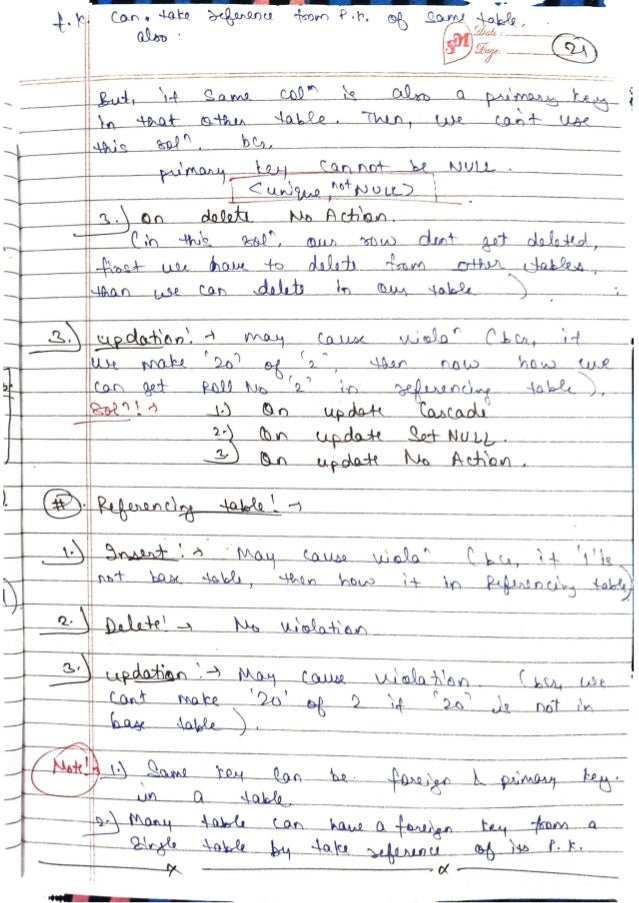 f.k can take reference from P.k. of same table.
also.
SM Date:
Page
21
But, if same colⁿ is also a primary key
in that other table. Then, we can't use
this solⁿ. bcz,
primary key cannot be NULL.
<unique, not NULL>
3.) On delete No Action.
(in this solⁿ, our row dont get deleted,
first we have to delete from other tables,
than we can delete in our table )
3.) updation! → may cause violaⁿ (bcz, if
we make '20' of '2', then now how we
can get Roll No '2' in referencing table).
Solⁿ! → 1.) On update Cascade
2.) On update Set NULL.
3) On update No Action.
#. Referencing table! →
1.) Insert! → May cause violaⁿ (bcz, if '1' is
not base table, then how it in Referencing table)
2.) Delete! → No violation
3.) updation! → May cause violation. (bcz we
cant make '20' of 2 if '20' is not in
base table ).
Note! → 1.) Same key can be foreign & primary key.
in a table
2.) Many table can have a foreign key from a
single table by take reference of its P.K.